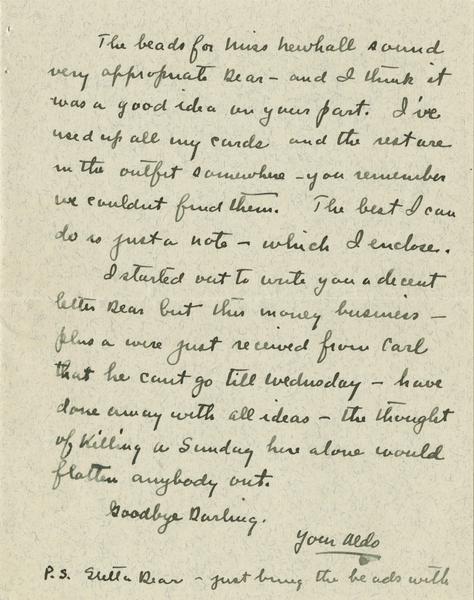 The beads for Miss Newhall sound
very appropriate Dear – and I think it
was a good idea on your part. I've
used up all my cards and the rest are
in the outfit somewhere – you remember
we couldnt find them. The best I can
do is just a note – which I enclose.
I started out to write you a decent
letter Dear but this money business –
plus a wire just received from Carl
that he cant go till Wednesday – have
done away with all ideas – the thought
of killing a Sunday here alone would
flatten anybody out.
Goodbye Darling.
Your Aldo
P.S. Dear – just bring the beads with